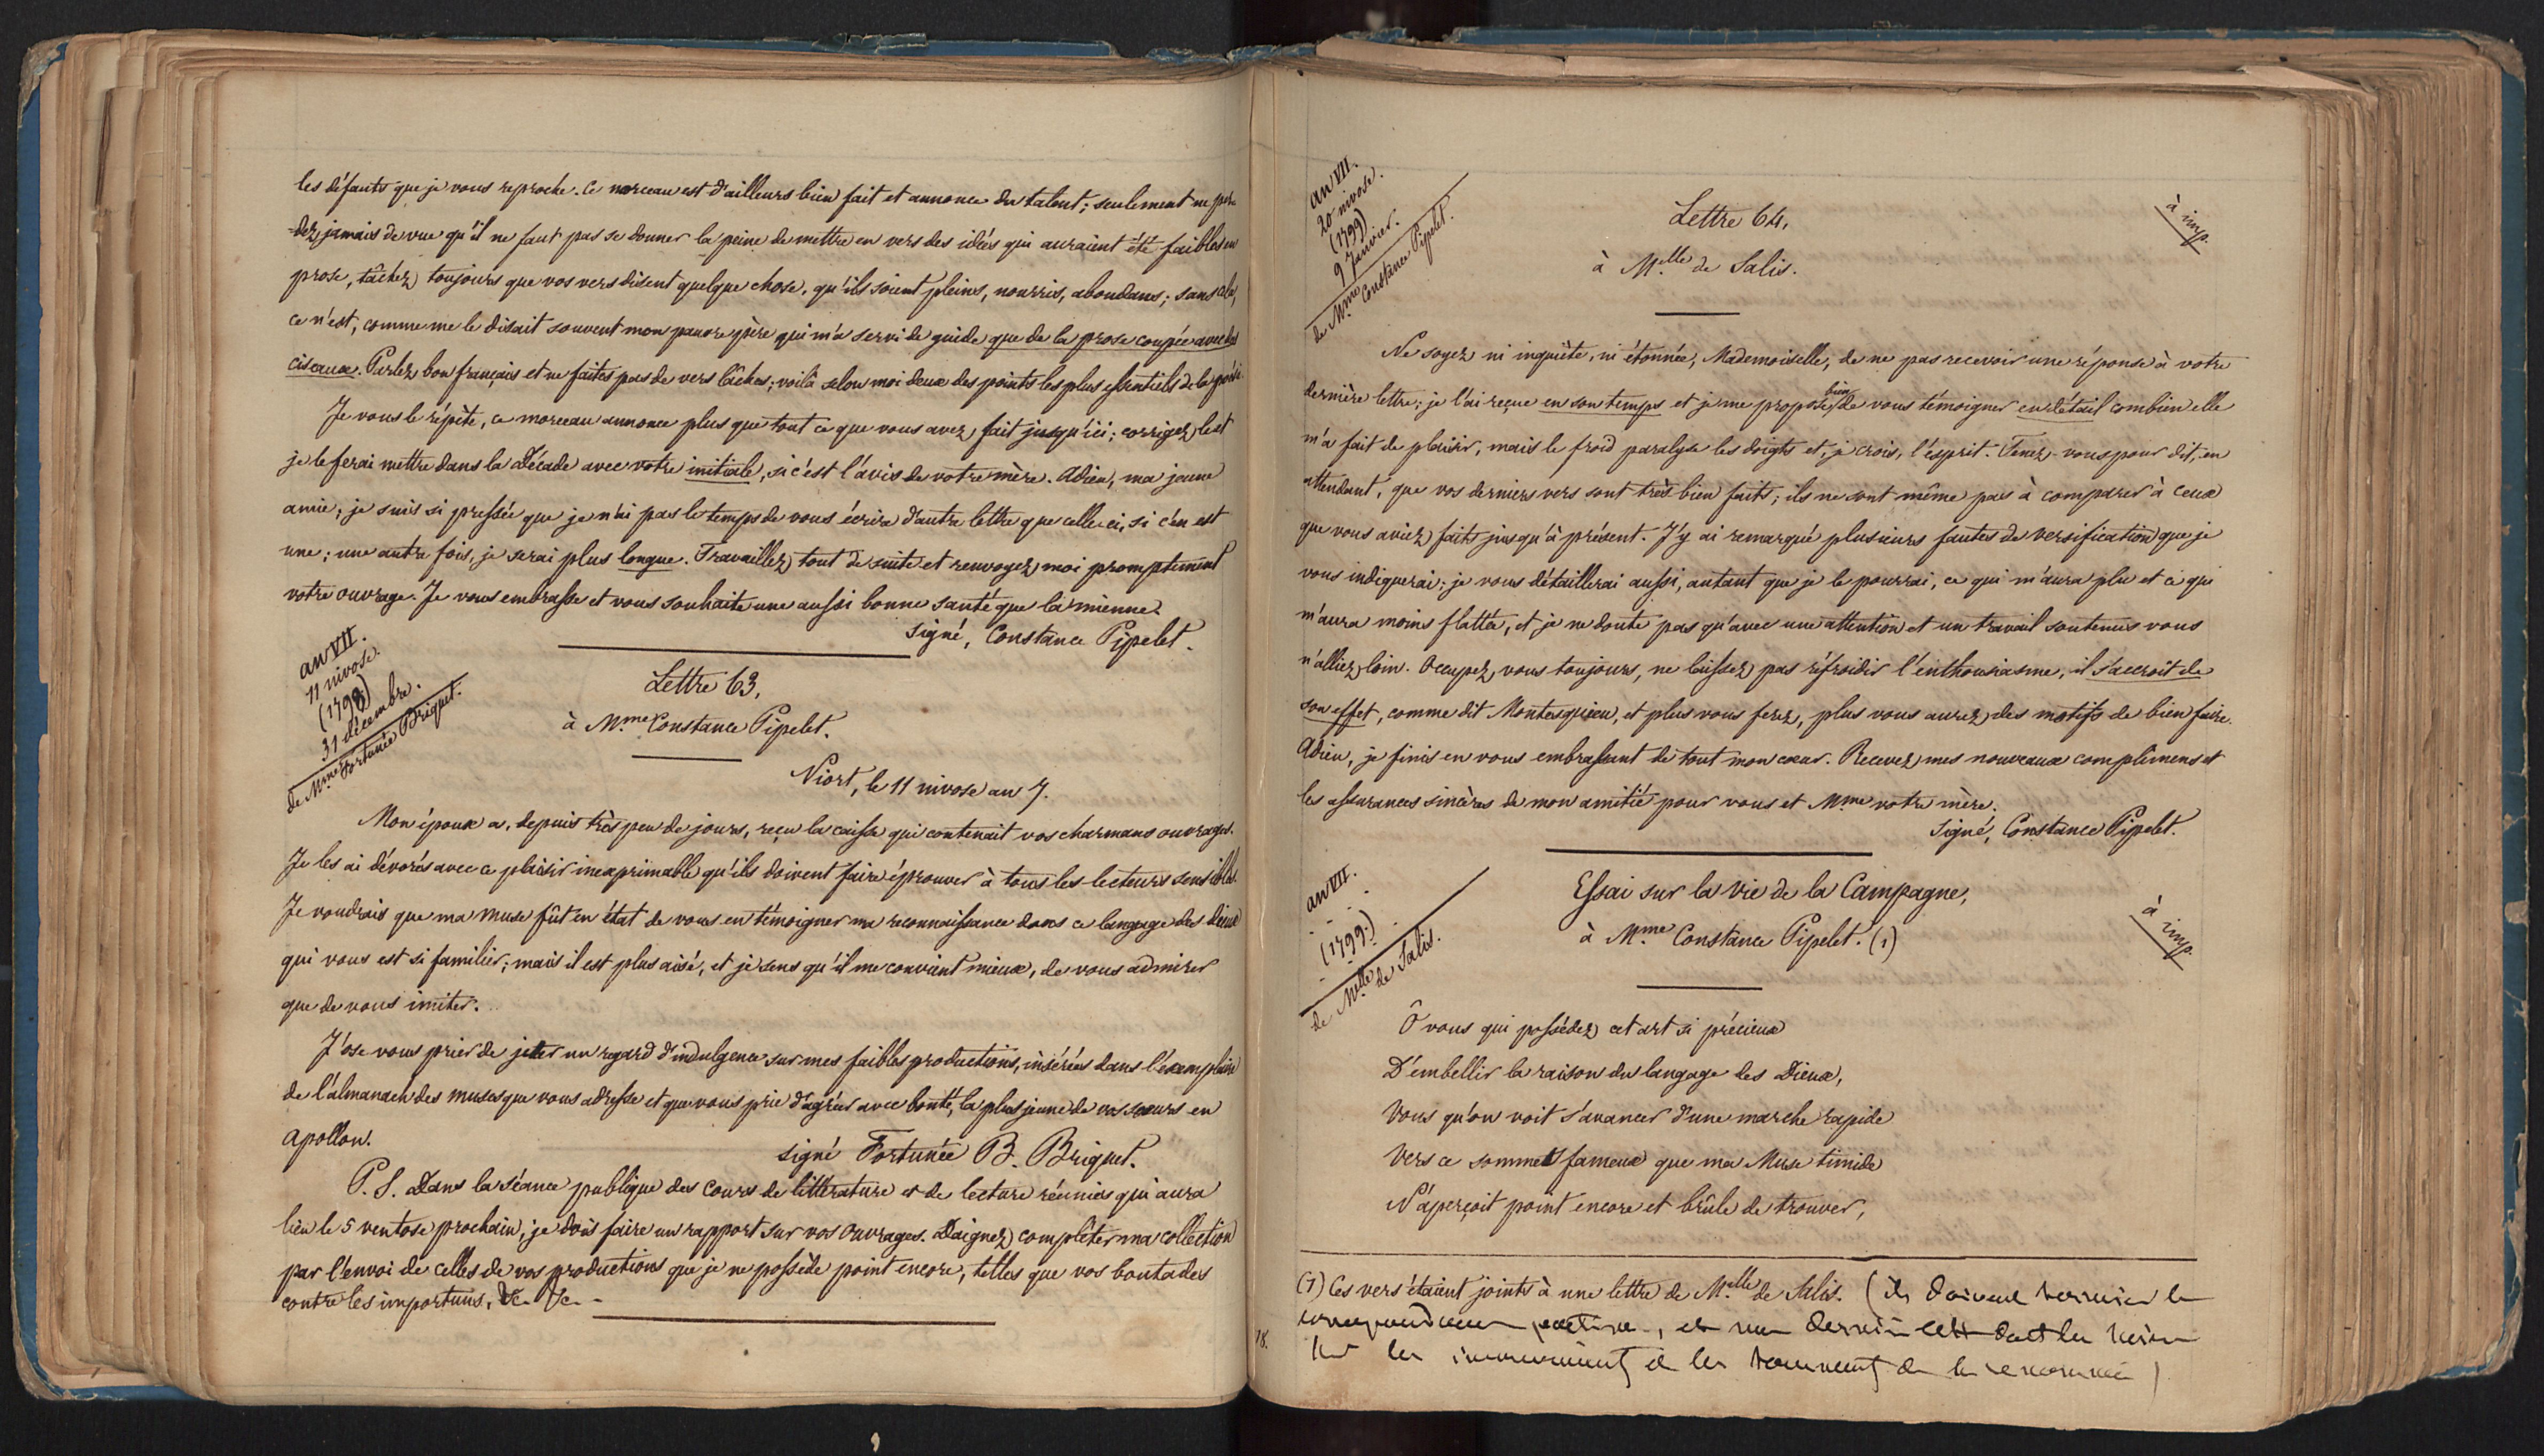 les défauts que je vous reproche. Ce morceau est d'ailleurs bien fait et annonce du talent; seulement ne per-
-dez jamais de vue qu'il ne faut pas se donner la peine de mettre en vers des idées qui auraient été faibles en
prose, tâchez toujours que vos vers disent quelque chose, qu'ils soient pleins, nourris, abondans; sans cela,
ce n'est, comme me le disait souvent mon pauvre père qui m'a servi de guide que de la prose coupée avec des
ciseaux. Parlez bon français et ne faites pas de vers lâches; voilà selon moi deux des points les plus essentiels de la poësi.
Je vous le répète, ce morceau annonce plus que tout ce que vous avez fait jusqu'ici; corrigez le et
je le ferai mettre dans la Décade avec votre initiale, si c'est l'avis de votre mère. Adieu, ma jeune
amie; je suis si pressée que je n'ai pas le temps de vous écrire d'autre lettre que celle-ci, si c'en est
une; une autre fois, je serai plus longue. Travaillez tout de suite et renvoyez moi promptement
votre ouvrage. Je vous embrasse et vous souhaite une aussi bonne santé que la mienne.
Signé, Constance Pipelet.
an VII.
11 nivose.
(1798)
31 décembre.
de Mme Fortunée Briquet.
Lettre 63,
à Mme Constance Pipelet.
Niort, le 11 nivose an 7.
Mon époux a, depuis très peu de jours, reçu la caisse qui contenait vos charmans ouvrages.
Je les ai dévorés avec ce plaisir inexprimable qu'ils doivent faire éprouver à tous les lecteurs sensibles.
Je voudrais que ma Muse fût en état de vous en témoigner ma reconnaissance dans ce langage des dieux
qui vous est si familier; mais il est plus aisé, et je sens qu'il me convient mieux, de vous admirer
que de vous imiter.
J'ose vous prier de jeter un regard d'indulgence sur mes faibles productions, insérées dans l'exemplaire
de l'almanach des muses que vous adresse et que vous prie d'agréer avec bonté, la plus jeune de vos sœurs en
apollon.
signé Fortunée B. Briquet.
P. S. Dans la séance publique des cours de littérature et de lecture réunies qui aura
lieu le 5 ventose prochain, je dois faire un rapport sur vos ouvrages. Daignez compléter ma collection
par l'envoi de celles de vos productions que je ne possède point encore, telles que vos boutades
contre les importuns, &c. &c. -
an VII.
20 nivose.
(1799)
9 Janvier.
de Mme Constance Pipelet.
à imp.
Lettre 64,
à Melle de Salis.
Ne soyez ni inquiète, ni étonnée, Mademoiselle, de ne pas recevoir une réponse à votre
dernière lettre; je l'ai reçue en son temps et je me propose bien de vous témoigner en détail combien elle
m'a fait de plaisir, mais le froid paralyse les doigts et, je crois, l'esprit. Tenez-vous pour dit, en
attendant, que vos derniers vers sont très bien faits; ils ne sont même pas à comparer à ceux
que vous aviez faits jusqu'à présent. J'y ai remarqué plusieurs fautes de versification que je
vous indiquerai; je vous détaillerai aussi, autant que je le pourrai, ce qui m'aura plu et ce qui
m'aura moins flatté, et je ne doute pas qu'avec une attention et un travail soutenus vous
n'alliez loin. Occupez vous toujours, ne laissez pas réfroidir l'enthousiasme, il s'accroît de
son effet, comme dit Montesquieu, et plus vous ferez, plus vous aurez des motifs de bien faire.
Adieu, je finis en vous embrassant de tout mon cœur. Recevez mes nouveaux complimens et
les assurances sincères de mon amitié pour vous et Mme votre mère.
Signé, Constance Pipelet.
an VII.
(1799.)
de Melle de Salis.
à imp.
Essai sur la vie de la Campagne,
à Mme Constance Pipelet. (1)
Ô vous qui possédez cet art si précieux
D'embellir la raison du langage des Dieux,
Vous qu'on voit s'avancer d'une marche rapide
Vers ce sommet fameux que ma Muse timide
N'aperçoit point encore et brûle de trouver,
(1) Ces vers étaient joints à une lettre de Melle de Salis. (ils doivent terminer la
correspondance
18.
sur les et les de la renommée)